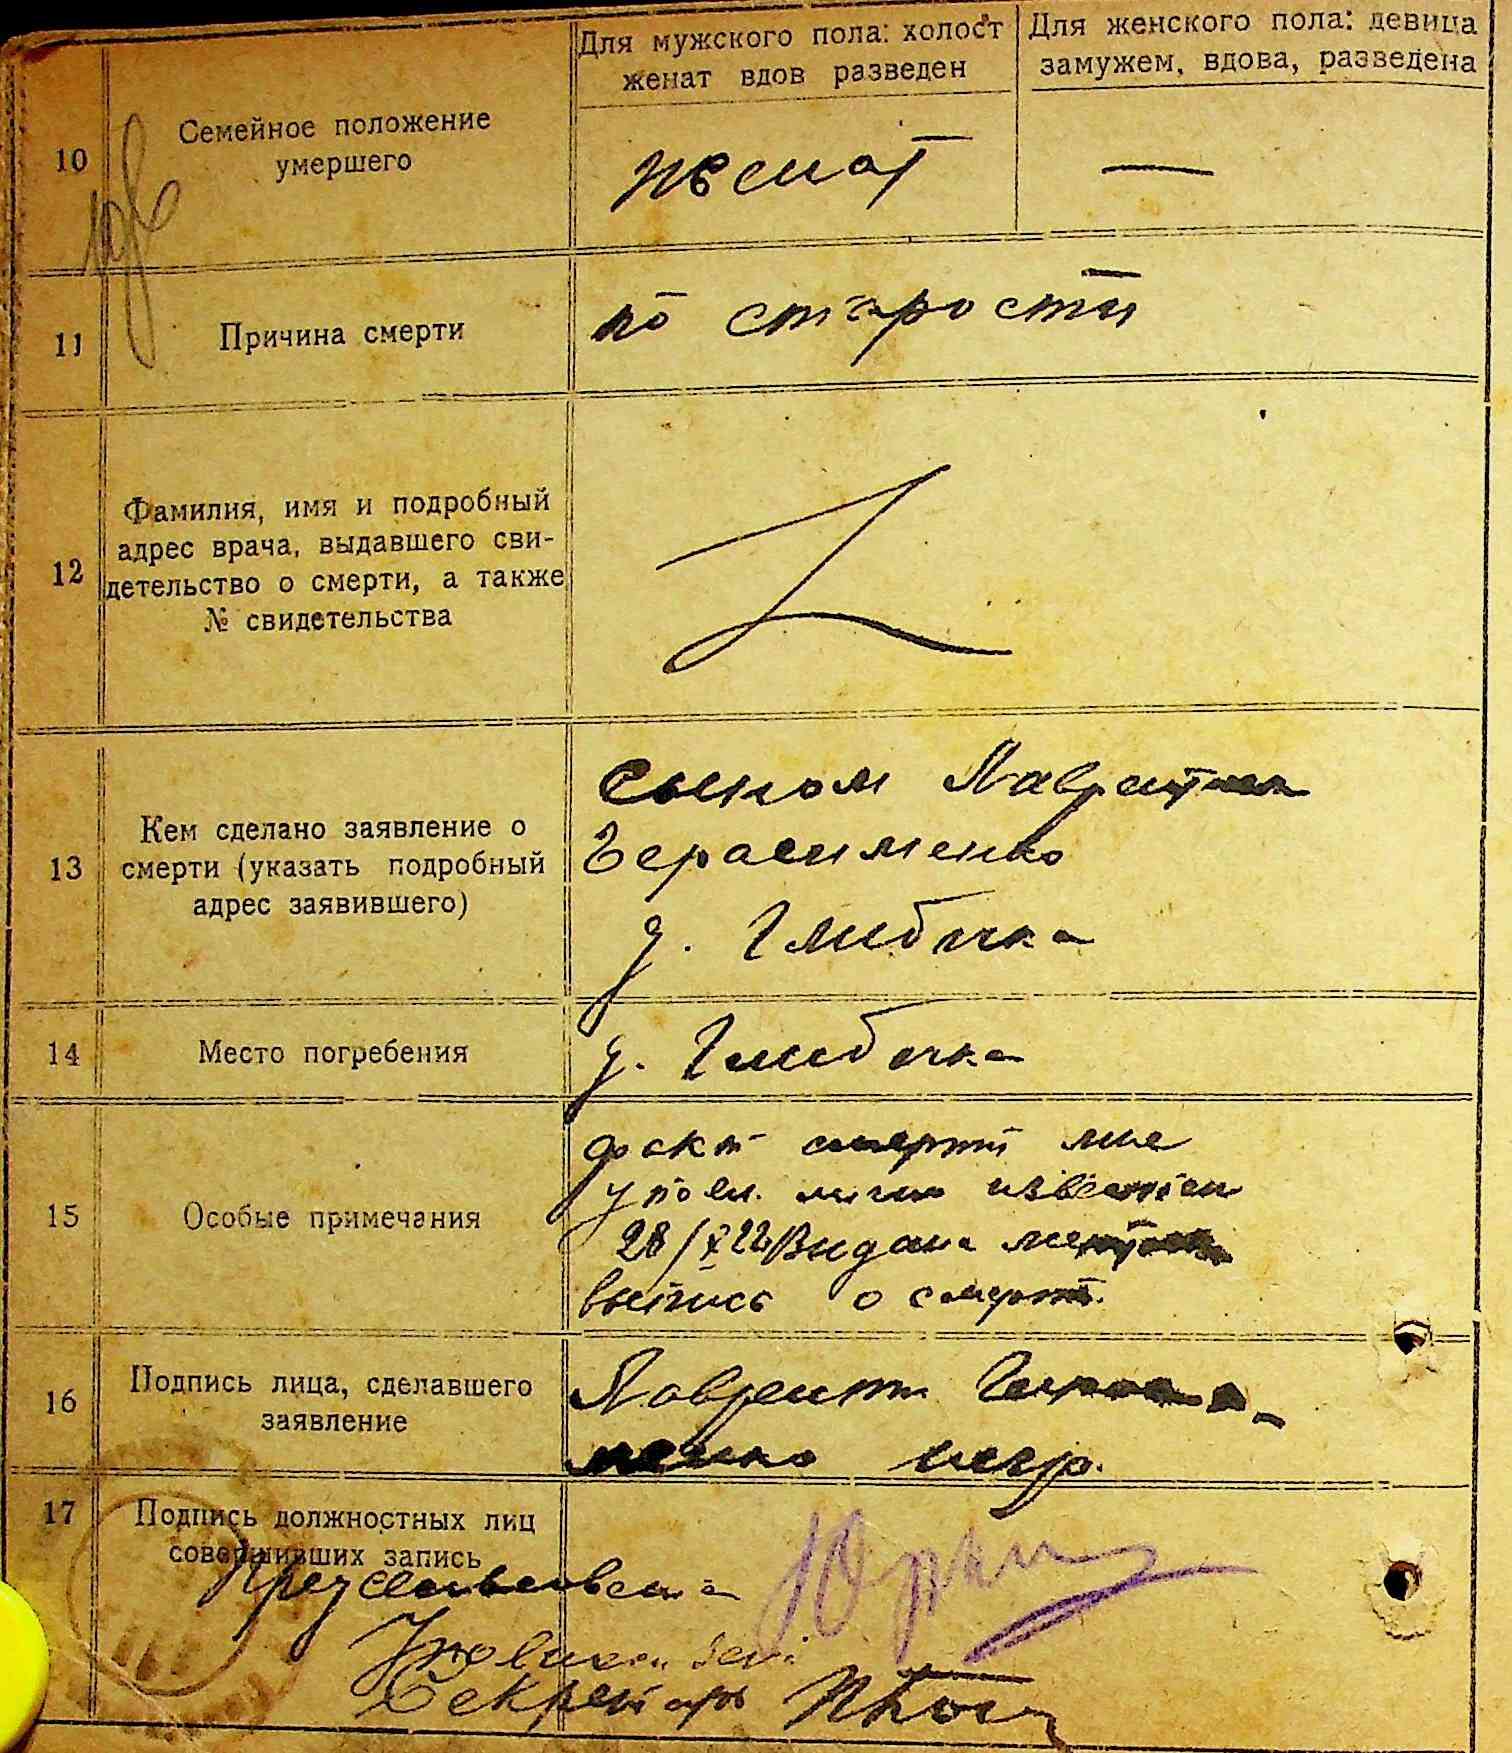 Для мужского пола: холост
женат вдов разведен
Для женского пола: девица
замужем, вдова, разведена
10
Семейное положение
умершего
женат
—
11
Причина смерти
по старости
12
Фамилия, имя и подробный
адрес врача, выдавшего сви-
детельство о смерти, а также
№ свидетельства
13
Кем сделано заявление о
смерти (указать подробный
адрес заявившего)
сыном Лаврентием
Герасименко
д. Глибочка
14
Место погребения
д. Глибочка
15
Особые примечания
факт смерти мне
лично известен
28/X 22 Видана
выпись о смерти.
16
Подпись лица, сделавшего
заявление
Лаврентий Гераси-
менко негр.
17
Подпись должностных лиц
совершивших запись
Секретарь